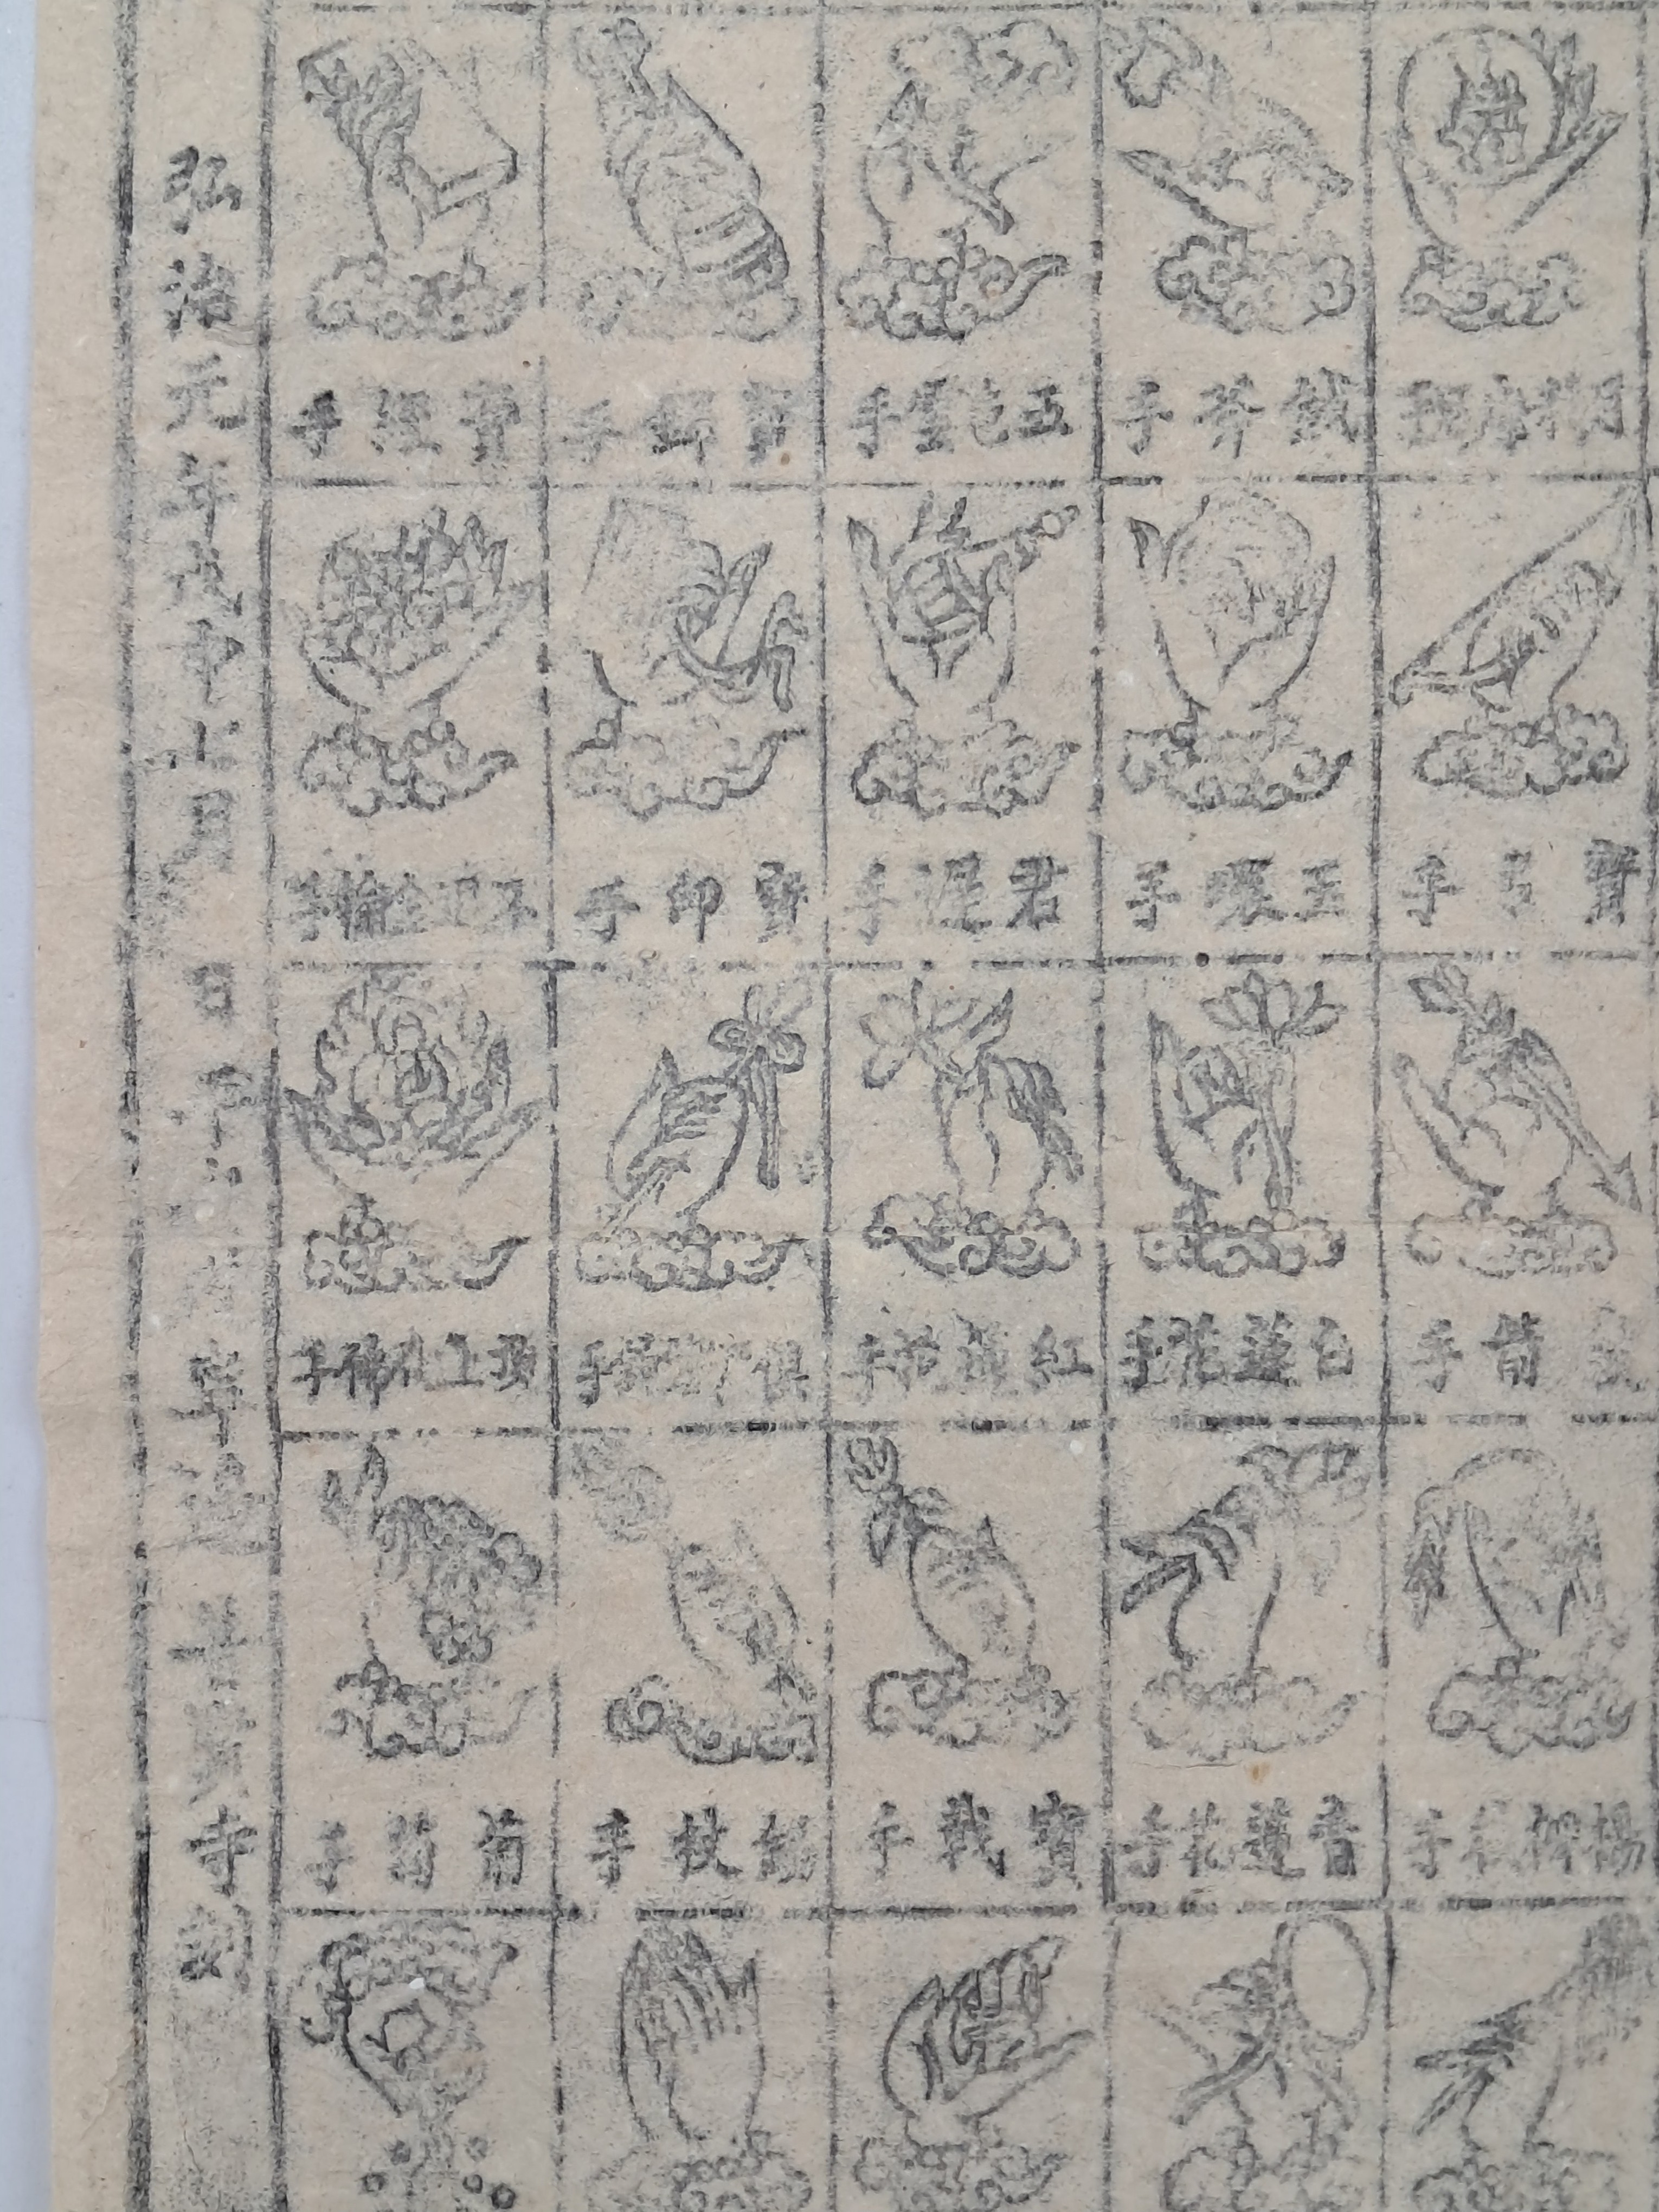 月精摩尼手
鐵斧手
五色雲手
寶鐸手
寶經手
寶弓手
玉環手
君遲手
寶印手
不退金輪手
箭手
白蓮花手
紅蓮花手
俱尸鐵鉤手
頂上化佛手
楊柳枝手
青蓮花手
寶戟手
錫杖手
葡萄手
弘治元年戊申七月 日 寺刻